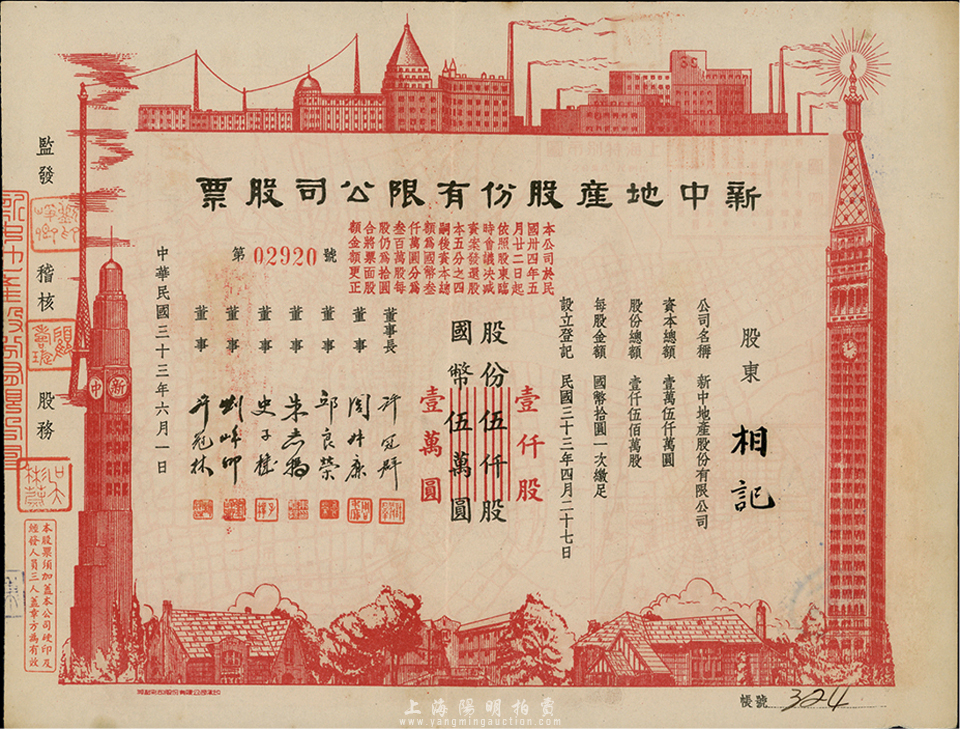 新中地產股份有限公司股票
股東 相記
公司名稱 新中地產股份有限公司
資本總額 壹萬伍仟萬圓
股份總額 壹仟伍佰萬股
每股金額 國幣拾圓一次繳足
設立登記 民國三十三年四月二十七日
壹仟股
股份伍仟股
國幣伍萬圓
壹萬圓
本公司於民
國卅四年五
月廿二日起
依照股東臨
時會議決減
資案發還股
本五分之四
嗣後資本總
額為國幣叁
仟萬圓分為
叁百萬股每
股仍為拾圓
合將票面股
額金額更正
第 02920 號
董事長 許冠群
董事
董事 邱良榮
董事
董事
董事
董事 許冠林
中華民國三十三年六月一日
監發
稽核
股務
新
中
本股票須加蓋本公司硬印及
經發人員三人蓋章方為有效
帳號 324
上海陽明拍賣
www.yangmingauction.com